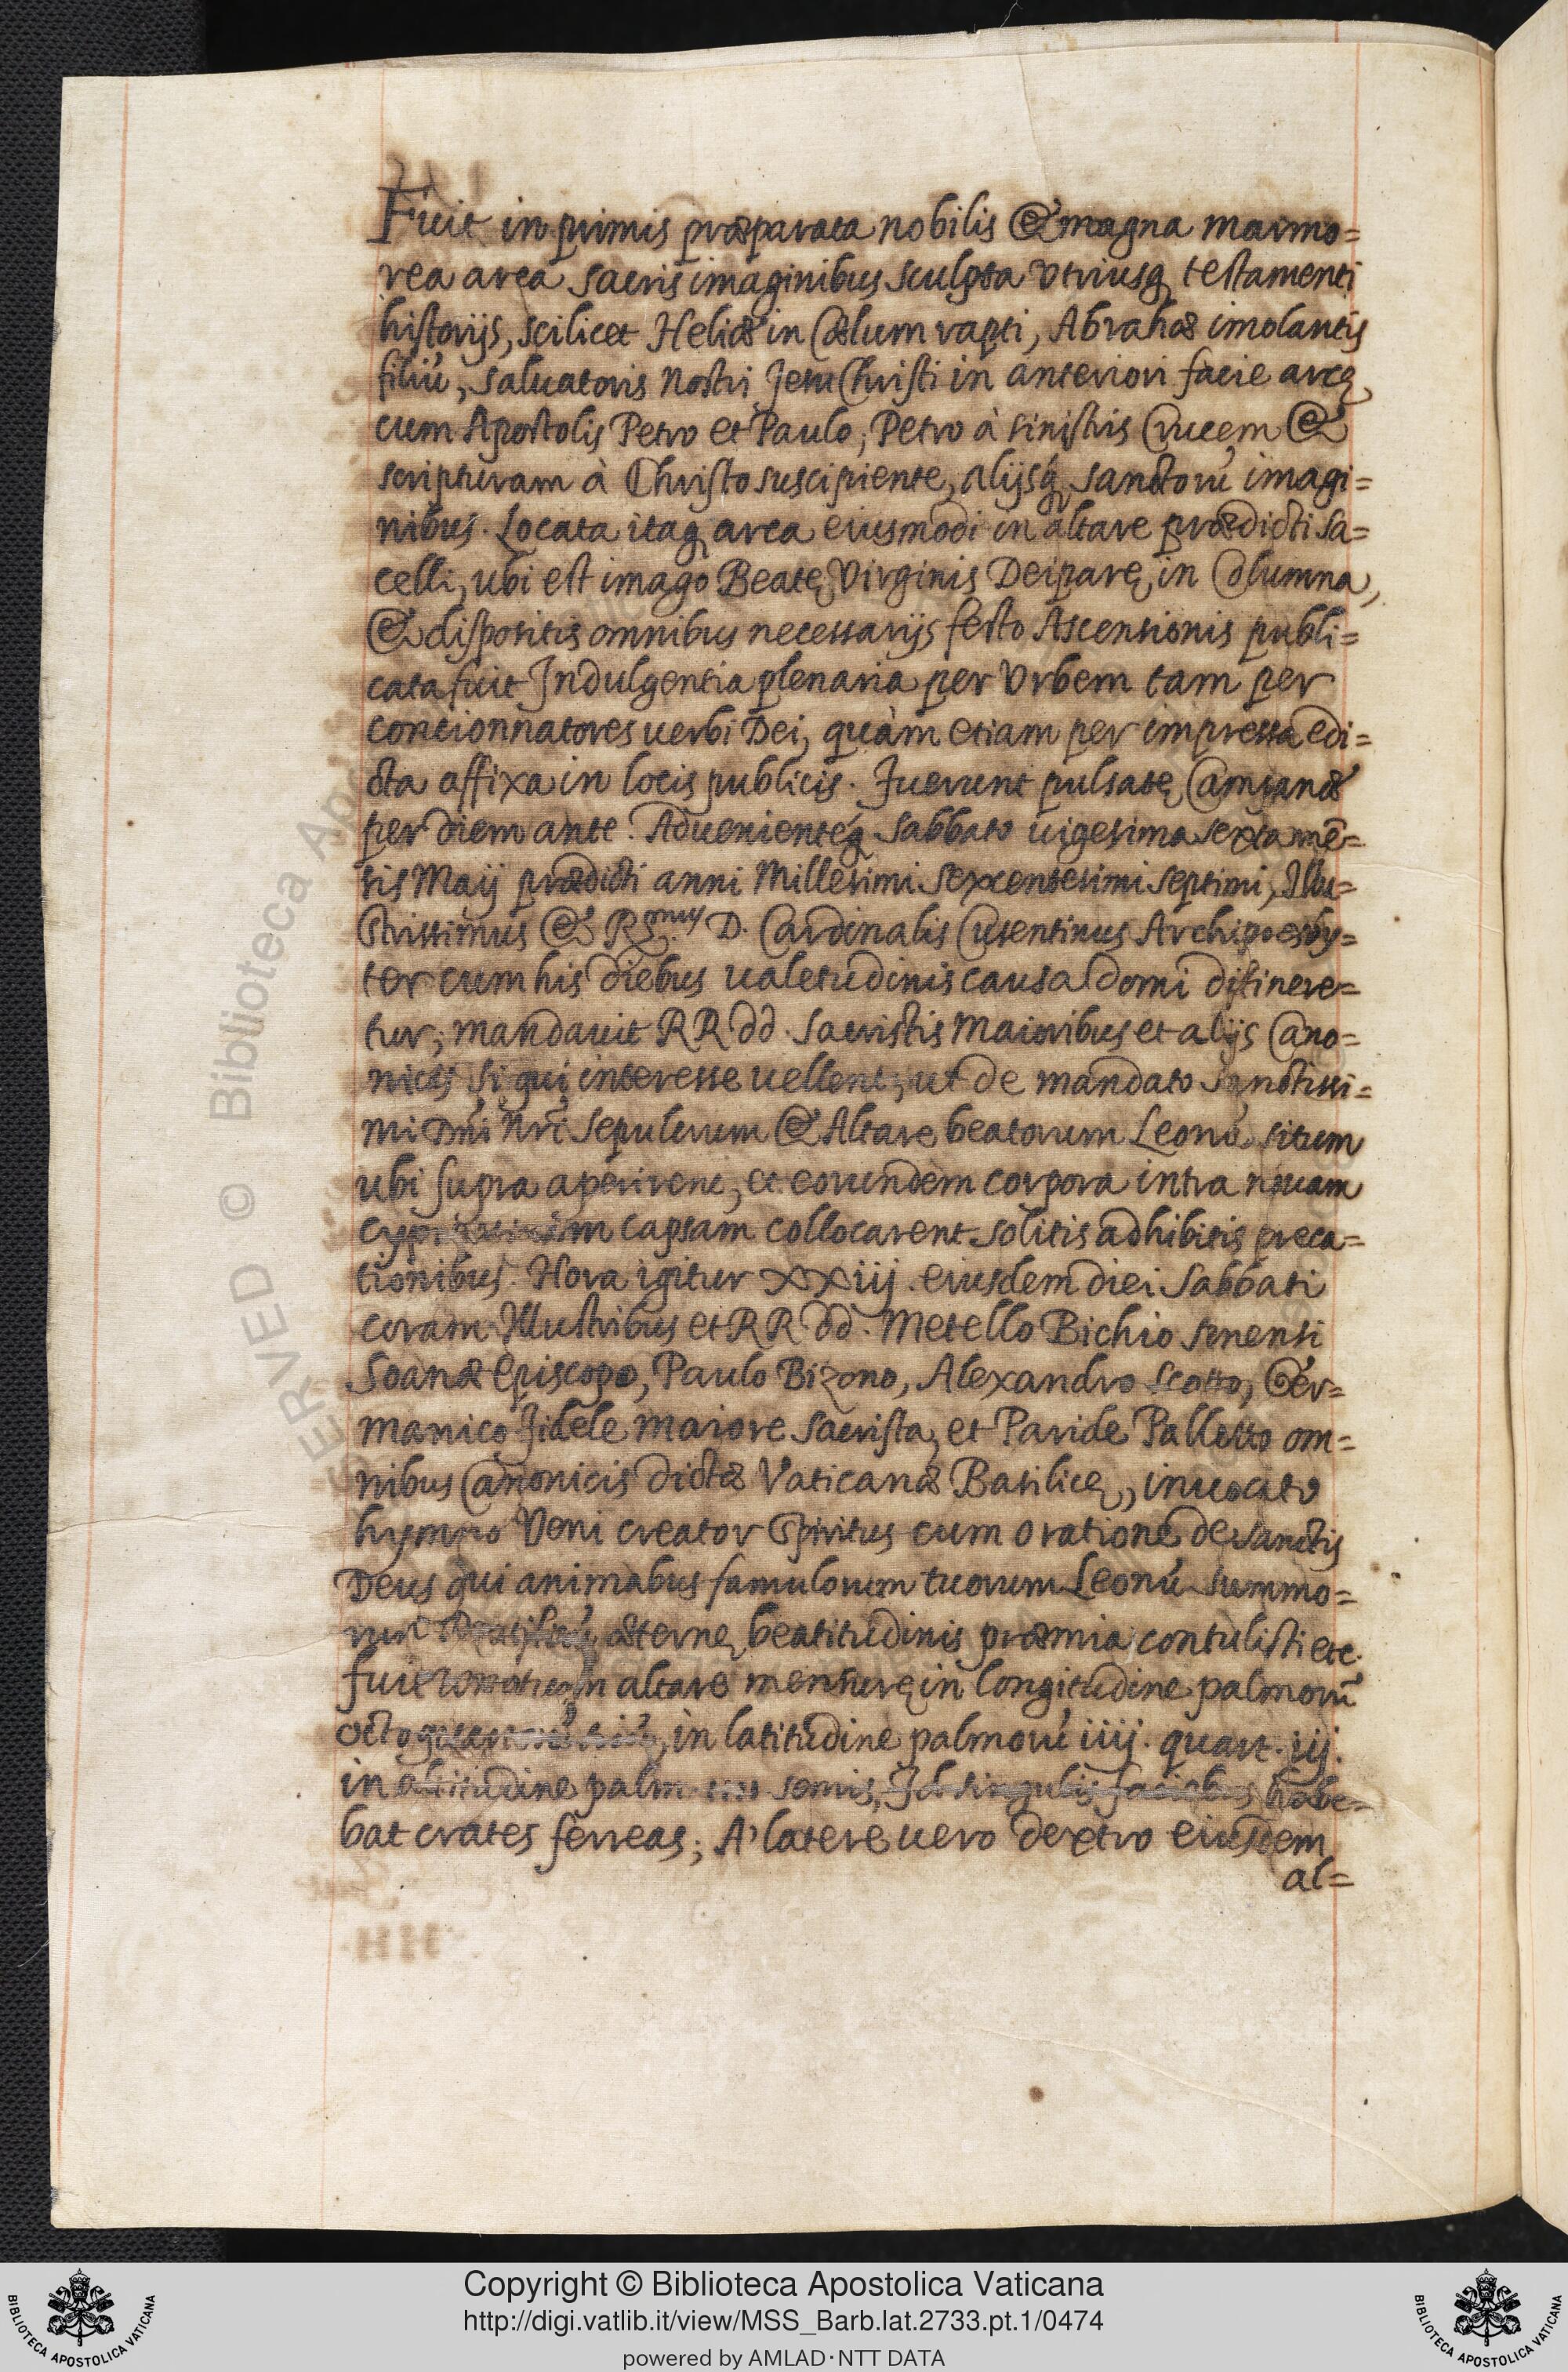 Fuit in primis præparata nobilis & magna marmo=
rea arca sacris imaginibus sculpta Vtriusq testamenti
historijs, scilicet Heliæ in Cælum rapti, Abrahæ imolantis
filiú, saluatoris nostri Jesu Christi in anteriori facie arcę
cum Apostolis Petro et Paulo, Petro à sinistris Crucem &
scripturam à Christo suscipiente, alijsq́ sanctorú imagi=
nibus. Locata itaq arca eiusmodi in altare prædicti sa=
celli, ubi est imago Beatę Virginis Deiparę in Columna,
& dispositis omnibus necessarijs festo Ascensionis publi=
cata fuit Indulgentia plenaria per Vrbem tam per
concionnatores uerbi Dei, quàm etiam per impressa edi=
cta affixa in locis publicis. Fuerunt pulsatę Campanæ
per diem ante. Aduenienteq́ sabbato uigesima sexta mē=
sis Maij prædicti anni Millesimi sexcentesimi septimi, Illu=
strissimus & R.mus D. Cardinalis Cusentinus Archipresby=
ter cum his diebus ualetudinis causa domi ditinere=
tur, mandauit RR dd. Sacristis maioribus et alijs Cano=
nicis si qui interesse uellent, ut de mandato Sanctissi=
mi Dñi Nri sepulcrum & Altare beatorum Leonú situm
ubi supra aperirent, et eorundem corpora intra nouam
capsam collocarent solitis adhibitis preca=
tionibus. Hora igitur XXiij. eiusdem diei Sabbati
coram Illustribus et RR dd. Metello Bichio senensi
Soanæ Episcopo, Paulo Bizono, Alexandro Scotto, Ger=
manico Fidele maiore sacrista, et Paride Palletto om=
nibus Canonicis dictæ Vaticanæ Basilicę, inuocato
hymno Veni creator Spiritus cum oratione de sanctis
Deus qui animabus famulorum tuorum Leonú summo=
rum Pontificú æternę beatitudinis præmia contulisti etc.
fuit altare mensurę in longitudine palmorú
octo in latitudine palmorú iiij. quart. iij.
in altitudine palm. semis, Id singulis faciebus habe=
bat crates ferreas; A' latere uero dextro eiusdem
al=
Copyright © Biblioteca Apostolica Vaticana
http://digi.vatlib.it/view/MSS_Barb.lat.2733.pt.1/0474
powered by AMLAD·NTT DATA
BIBLIOTECA APOSTOLICA VATICANA
BIBLIOTECA APOSTOLICA VATICANA